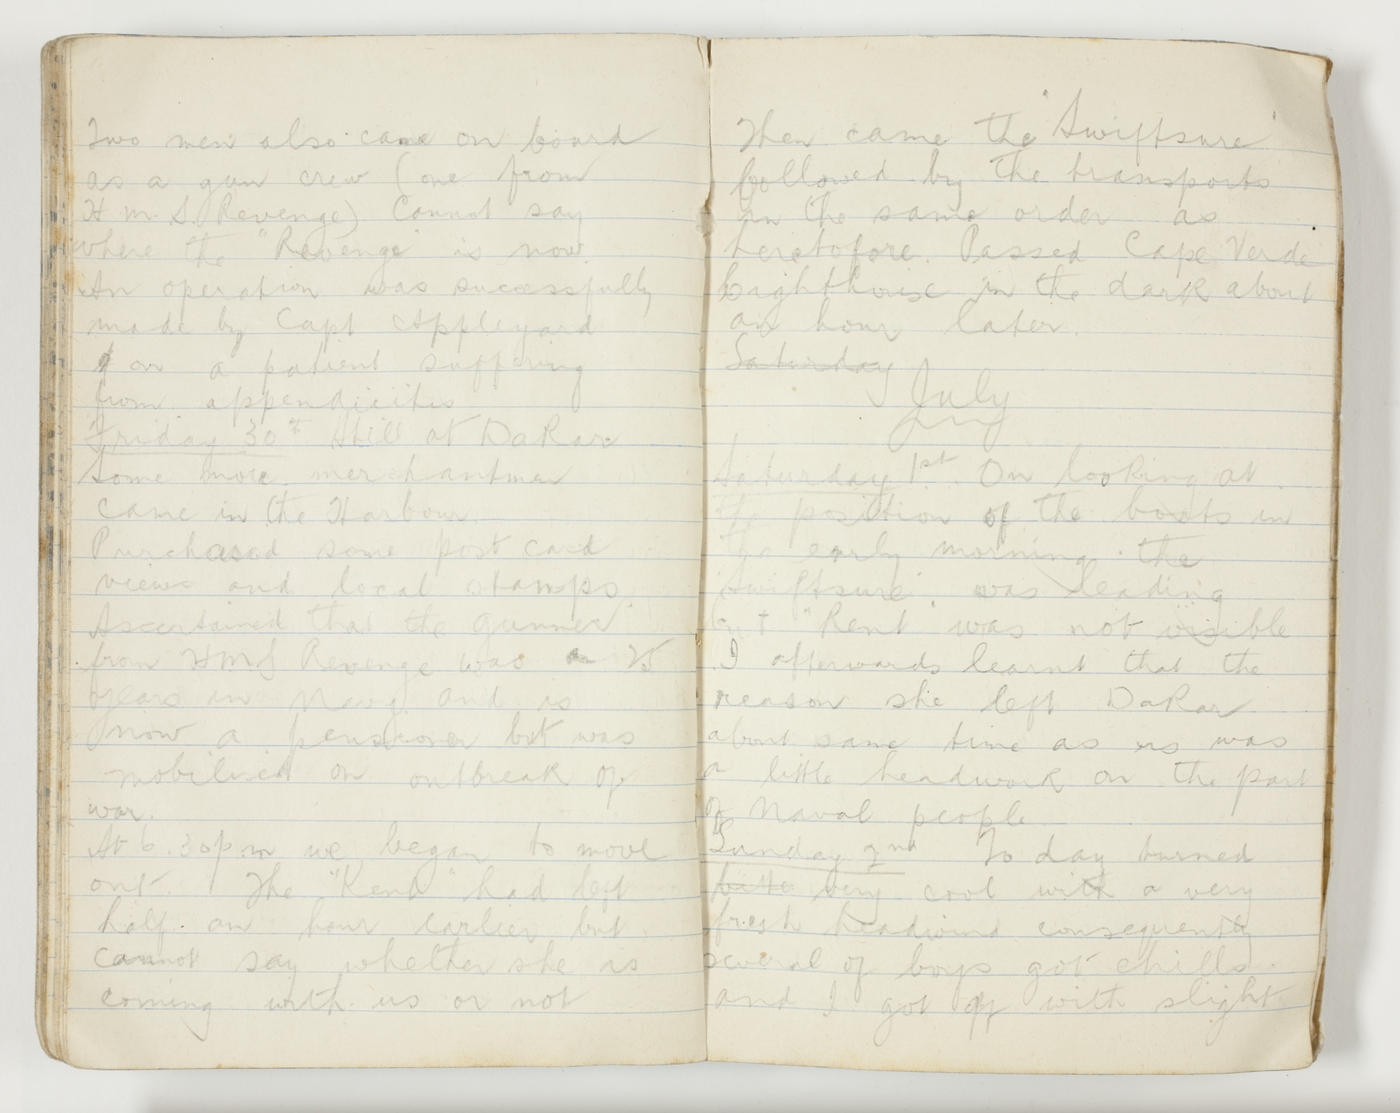 Two men also came on board
as a gun crew (one from
H.M.S. Revenge) Cannot say
where the "Revenge" is now.
An operation was successfully
made by Capt Appleyard
on a patient suffering
from appendicitis
Friday 30th Still at Dakar
Some more merchantmen
came in the Harbour.
Purchased some post card
views and local stamps.
Ascertained that the gunner
from HMS Revenge was 25
years in Navy and is
now a pensioner but was
mobilised on outbreak of
war.
At 6.30 p.m we began to move
out. The "Kent" had left
half an hour earlier but
cannot say whether she is
coming with us or not
Then came the "Swiftsure"
followed by the transports
in the same order as
heretofore. Passed Cape Verde
Lighthouse in the dark about
an hour later.
Saturday
July
Saturday 1st. On looking at
the position of the boats in
the early morning the
"Swiftsure" was leading
but "Kent" was not visible
I afterwards learnt that the
reason she left Dakar
about same time as us was
a little headwork on the part
of Naval people
Sunday 2nd To day turned
bitte very cool with a very
fresh headwind consequently
several of boys got chills
and I got off with slight